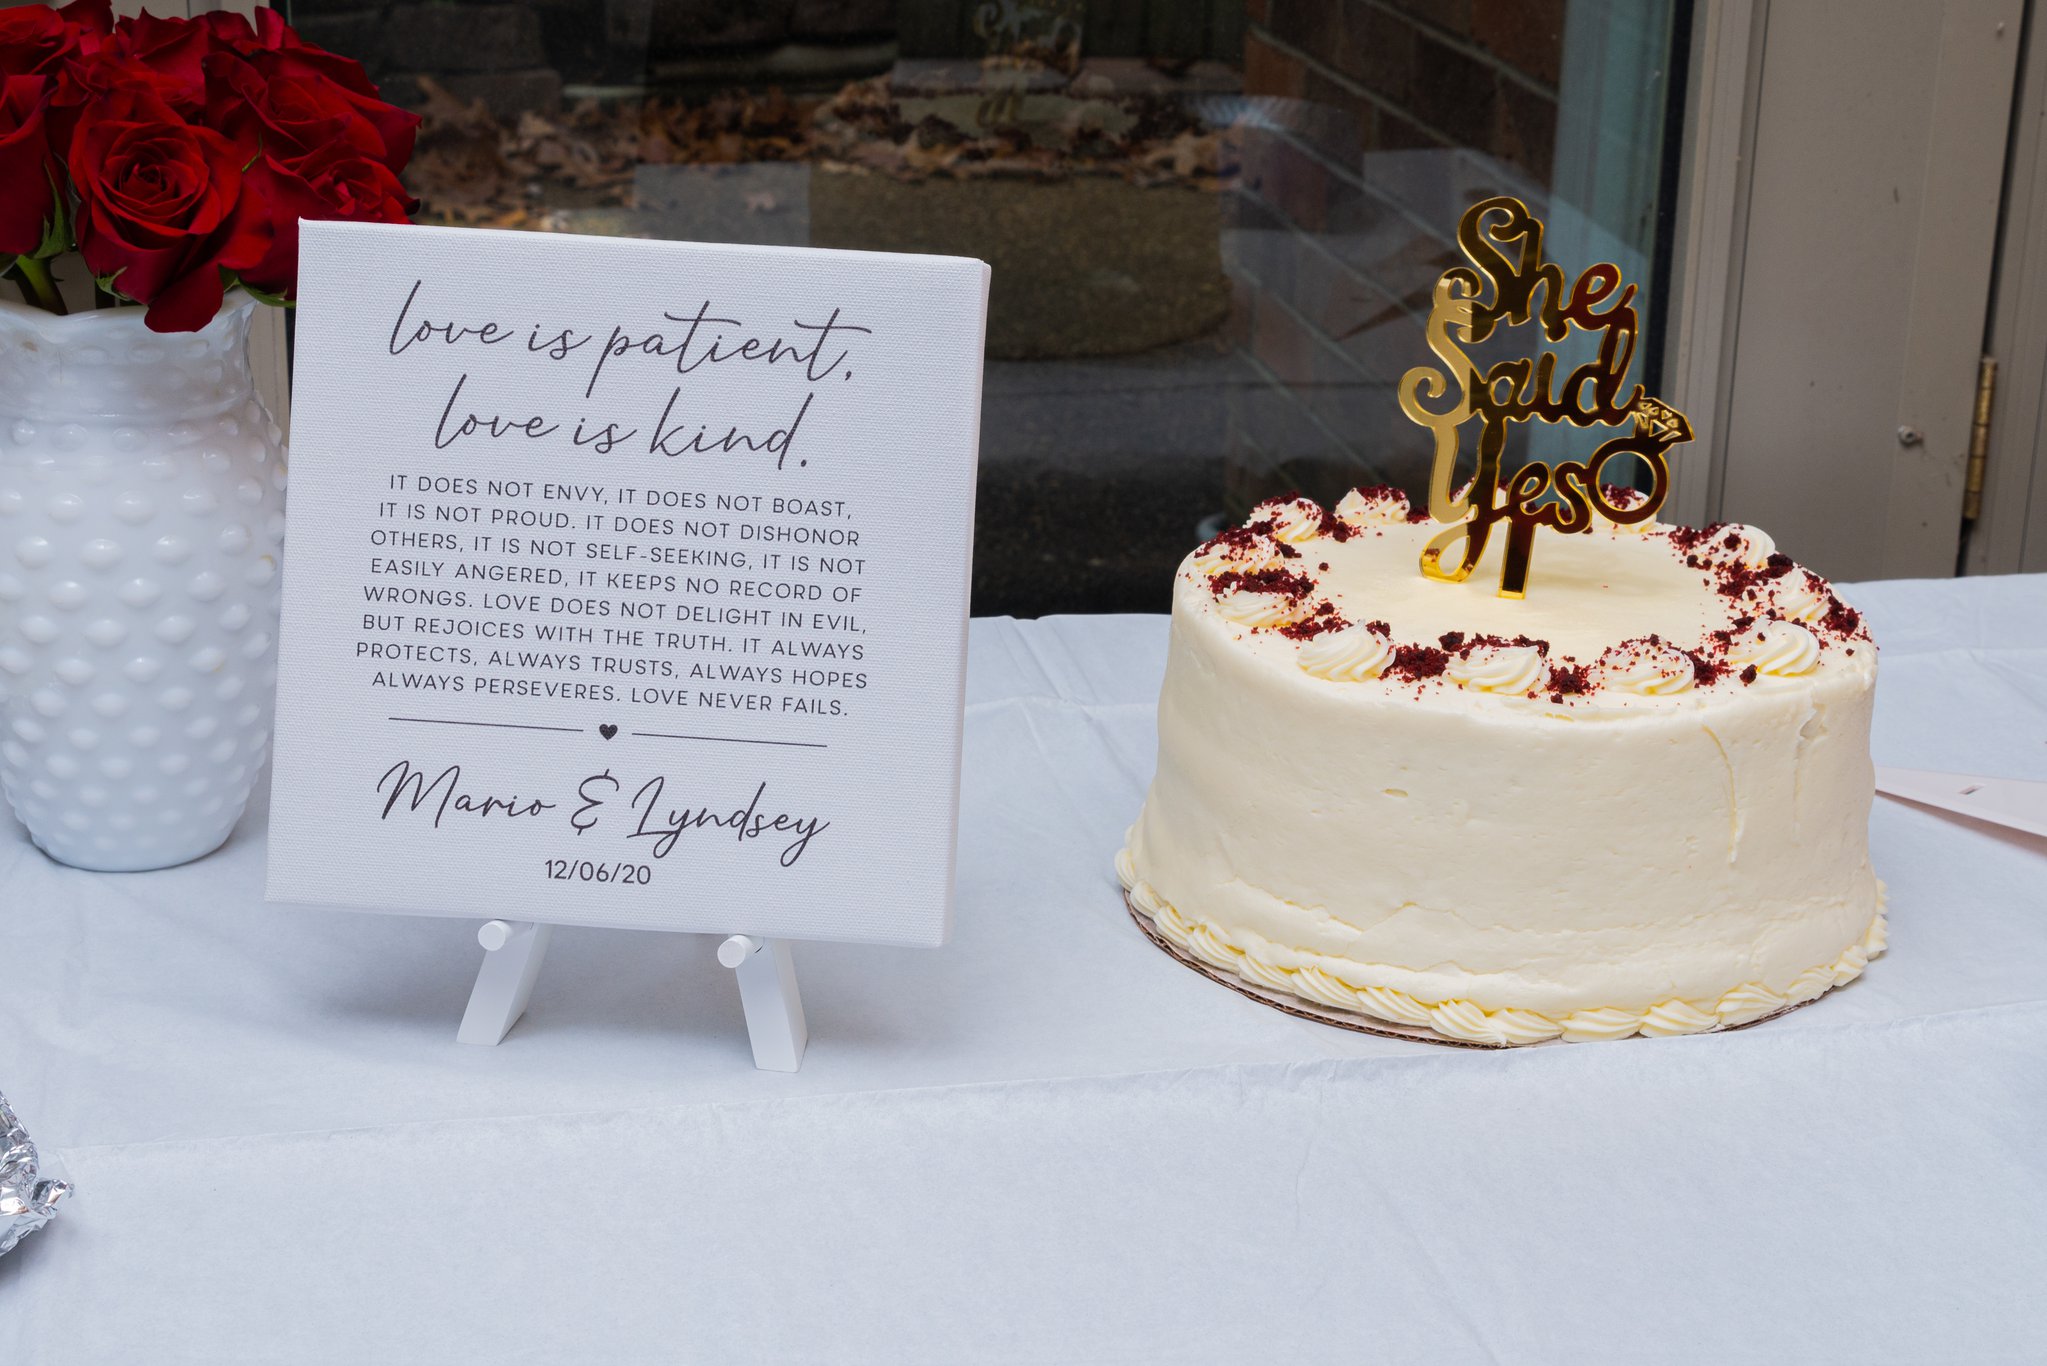 love is patient,
love is kind.
IT DOES NOT ENVY, IT DOES NOT BOAST,
IT IS NOT PROUD. IT DOES NOT DISHONOR
OTHERS, IT IS NOT SELF-SEEKING, IT IS NOT
EASILY ANGERED, IT KEEPS NO RECORD OF
WRONGS. LOVE DOES NOT DELIGHT IN EVIL,
BUT REJOICES WITH THE TRUTH. IT ALWAYS
PROTECTS, ALWAYS TRUSTS, ALWAYS HOPES
ALWAYS PERSEVERES. LOVE NEVER FAILS.
Mario & Lyndsey
12/06/20
She
Said
Yes